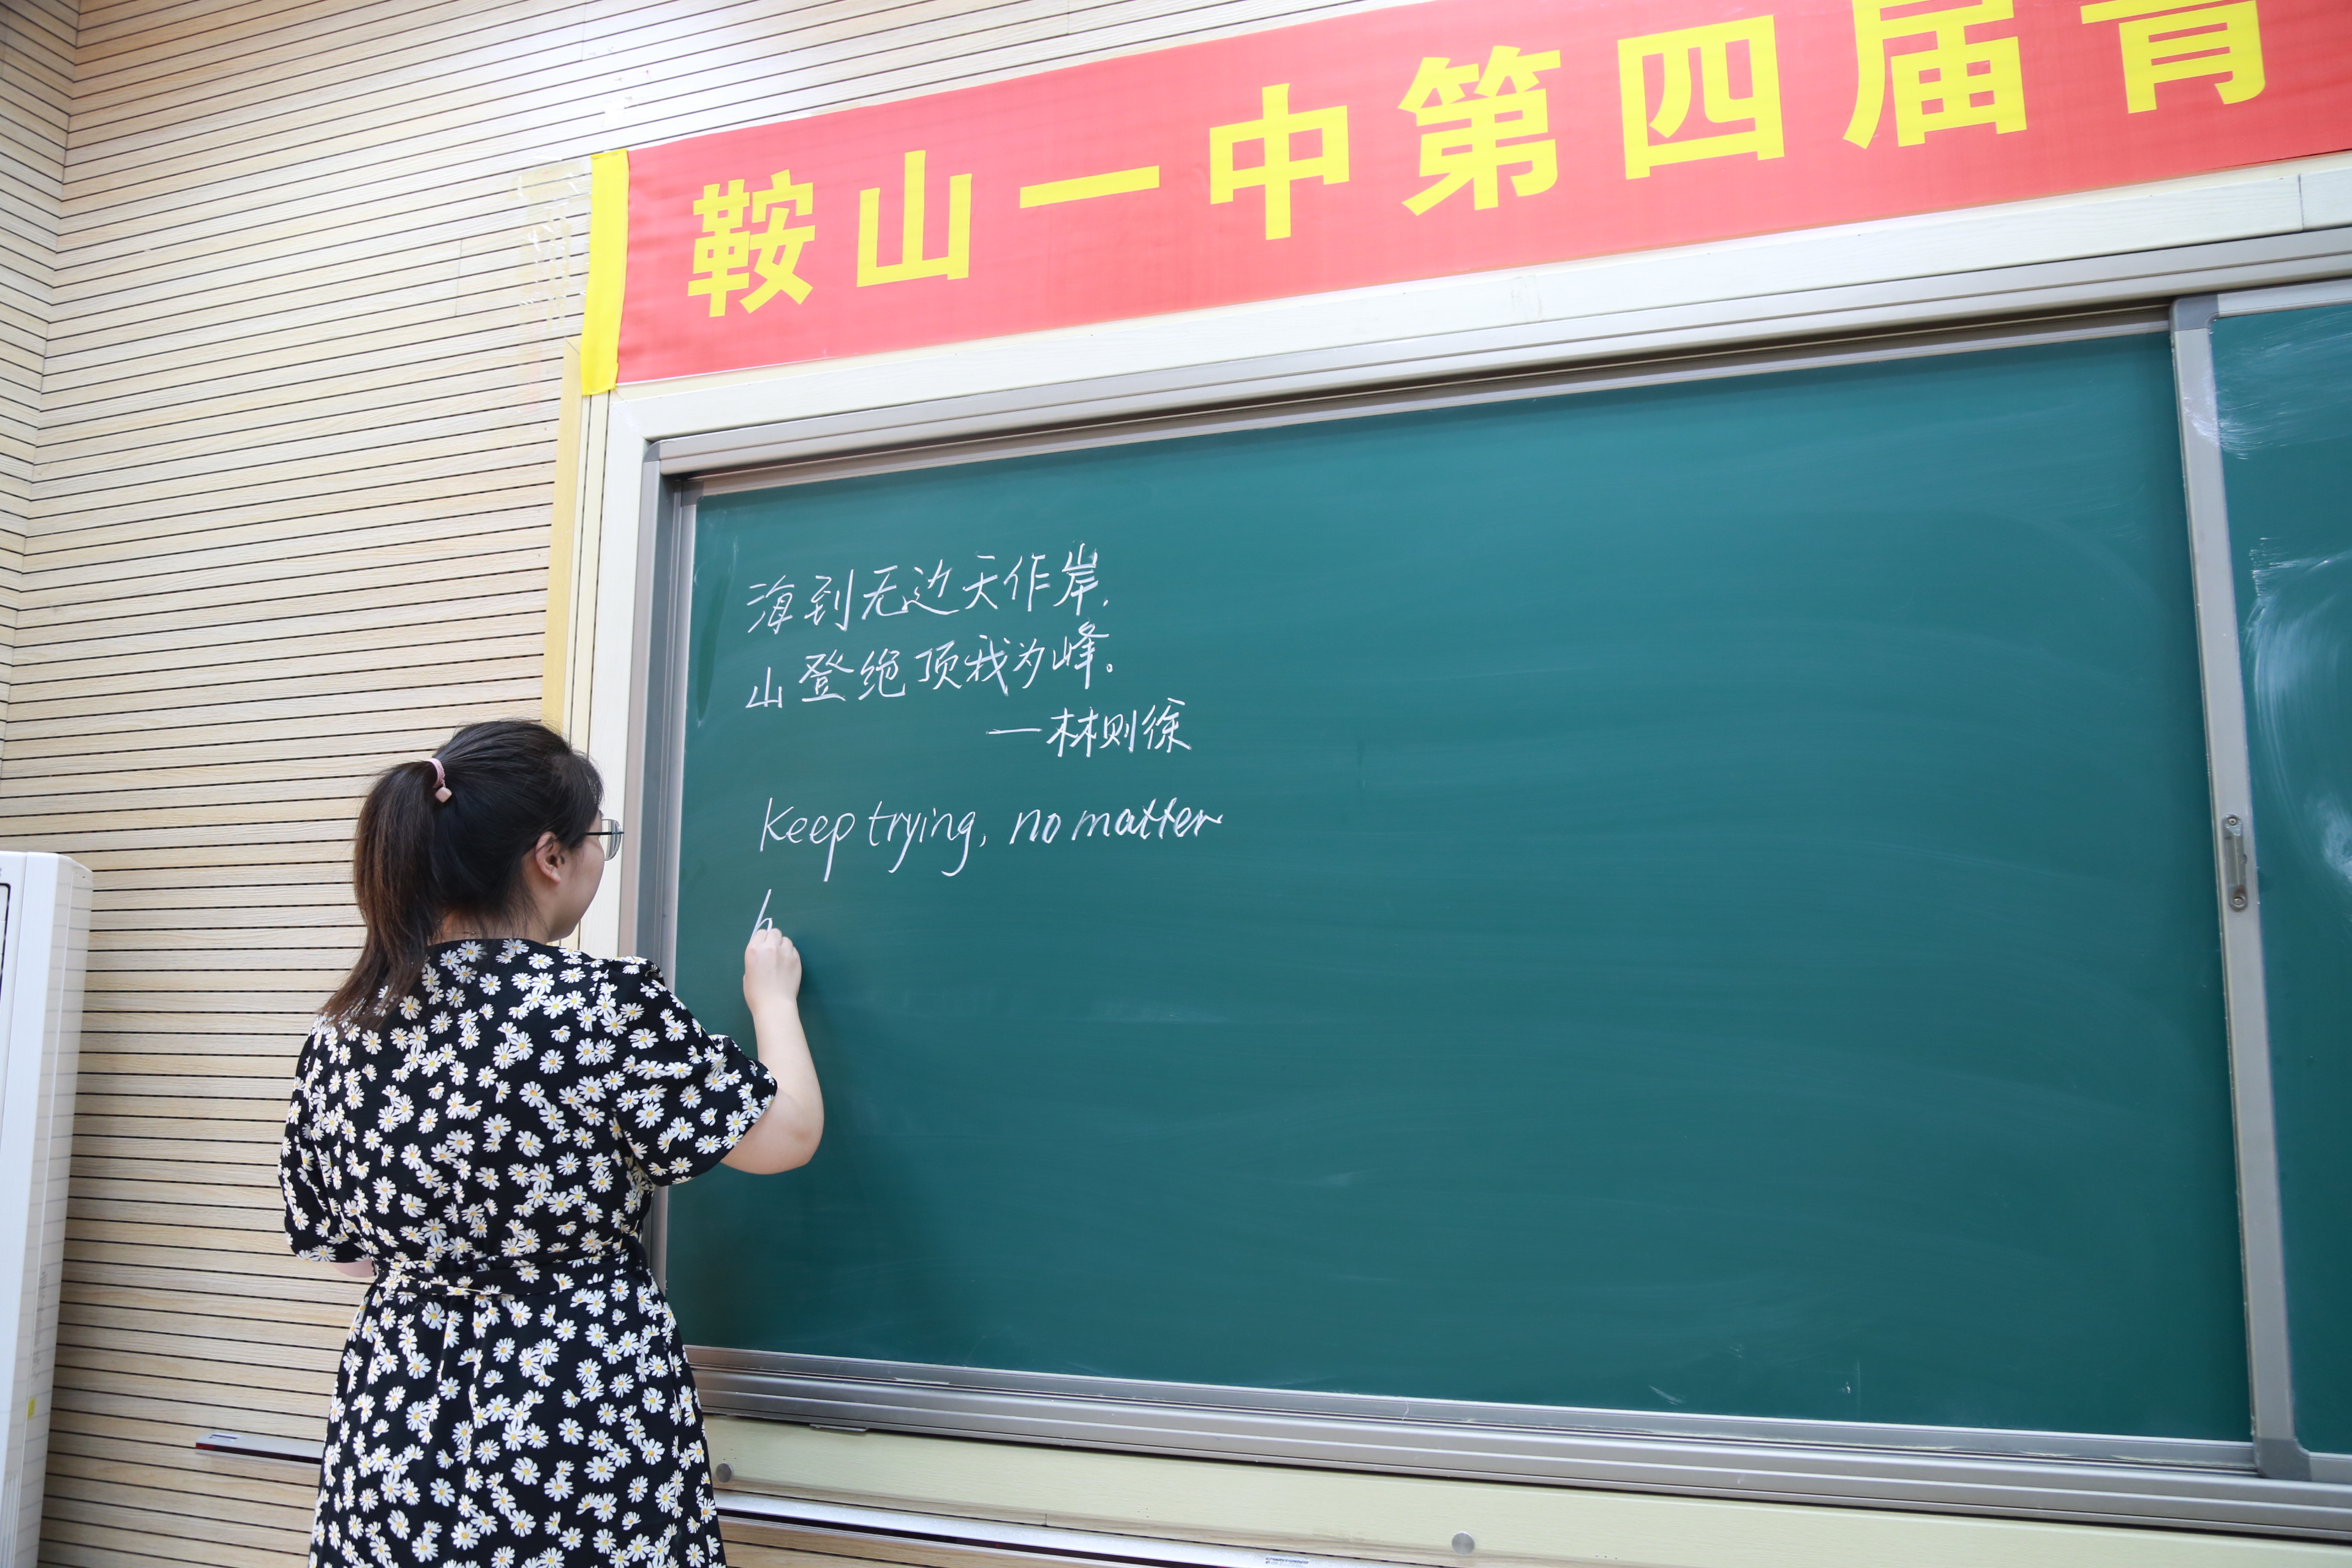 鞍山一中第四届青
海到无边天作岸,
山登绝顶我为峰。
—林则徐
Keep trying, no matter
h